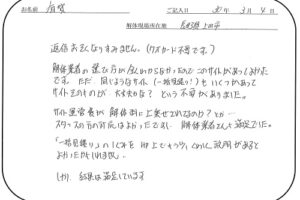 お名前 有賀 ご記入日 30年3月4日
解体現場所在地 長野県上田市
返信おそくなりすみません。(クオカード不要です。)
解体業者の選び方が全くわからなかったのでこのサイトがあってよかった
です。ただ、同じようなサイト、「一括見積り!」もいくつかあって
サイトそのものが大丈夫かな?という不安がありました。
サイト運営費が解体費に上乗せされてるのか?とか…
スタッフの方の対応はよかったですし、解体業者さんも満足でした。
「一括見積り」のしくみを HP上でもう少しくわしく説明があると
よかったかもしれません。
結果は満足しています